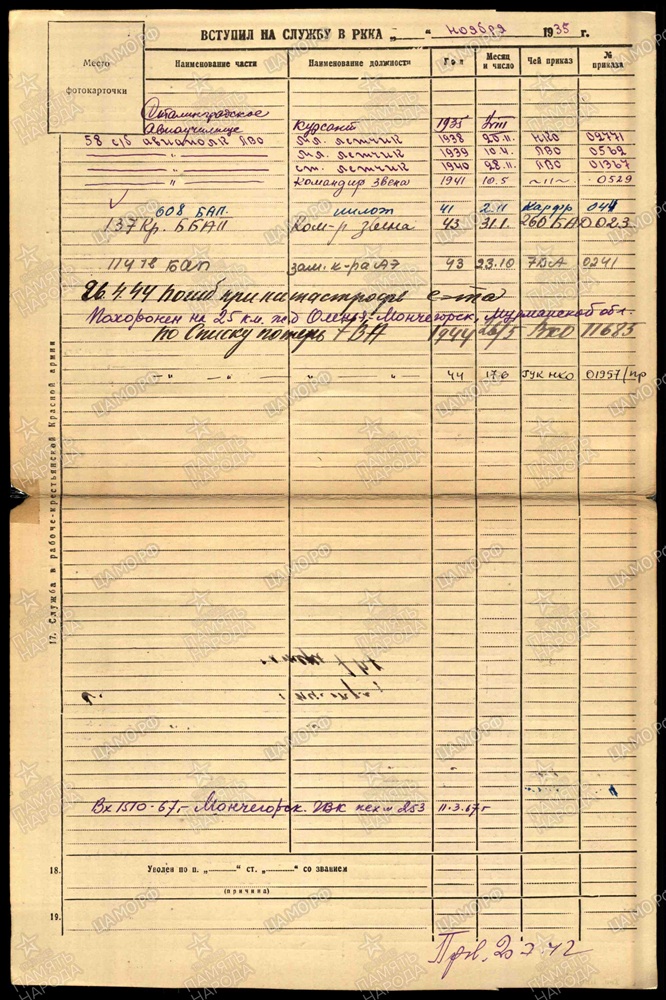 ВСТУПИЛ НА СЛУЖБУ В РККА „ “ ноября 1935 г.
Место фотокарточки
Наименование части Наименование должности Год Месяц и число Чей приказ № приказа
Сталинградское
Авиаучилище Курсант 1935
58 сб авиаполк ЛВО мл. летчик 1938 25.11 НКО 02771
— " — мл. летчик 1939 10.4 ЛВО 0562
— " — ст. летчик 1940 28.11 ЛВО 01367
— " — Командир звена 1941 10.5 —"— 0529
608 БАП. пилот 41 2.11 Карфр 044
137 Кр. ББАП Ком-р звена 43 31.1. 260 БАД 0023
114 гв БАП зам. к-ра АЭ 43 23.10 7ВА 0241
26.4.44 Погиб при катастрофе с-та
Похоронен на 25 км. жд Оленья-Мончегорск, Мурманской обл.
По Списку потерь 7 ВА 1944 26/5 НКО 11685
— " — " — " — 44 17.6 ГУК НКО 01957/пр
17. Служба в рабоче-крестьянской Красной армии
Вх 1510-67г Мончегорск. ГВК 253 11.3.67г
18. Уволен по п. „ “ ст. „ “ со званием
(причина)
19.
ПАМЯТЬ НАРОДА
ЦАМО.РФ